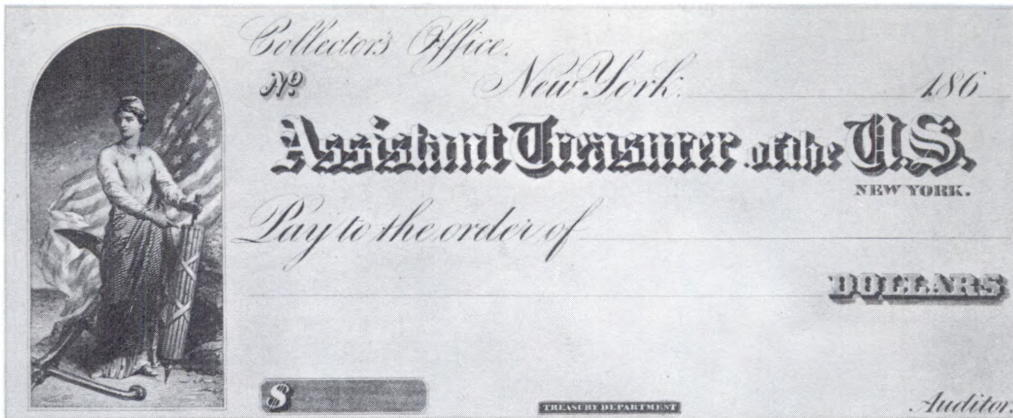 Collector's Office.
No New York. 186
Assistant Treasurer of the U.S.
NEW YORK.
Pay to the order of
DOLLARS
$
TREASURY DEPARTMENT
Auditor.